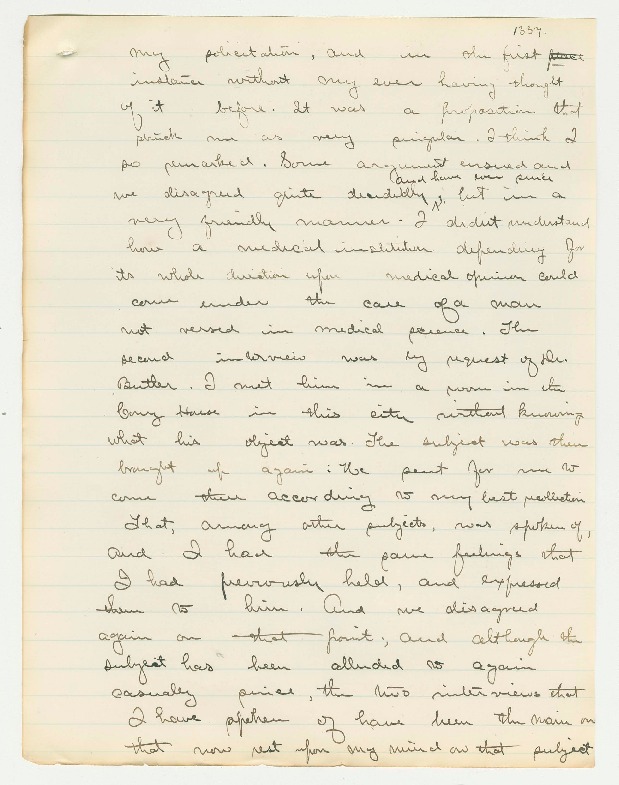 1337.
my solicitation, and in the first place
instance without my ever having thought
of it before. It was a proposition that
struck me as very singular. I think I
so remarked. Some argument ensued and
and have ever since
we disagreed quite decidedly, but in a
very friendly manner. I didn't understand
how a medical institution depending for
its whole direction upon medical opinion could
come under the care of a man
not versed in medical science. The
second interview was by request of Dr.
Butler. I met him in a room in the
Cony House in this city without knowing
what his object was. The subject was then
brought up again: He sent for me to
come then according to my best recollection
That, among other subjects, was spoken of,
and I had the same feelings that
I had previously held, and expressed
them to him. And we disagreed
again on that point; and although the
subject has been alluded to again
casually since, the two interviews that
I have spoken of have been the main on
that now rest upon my mind on that subject